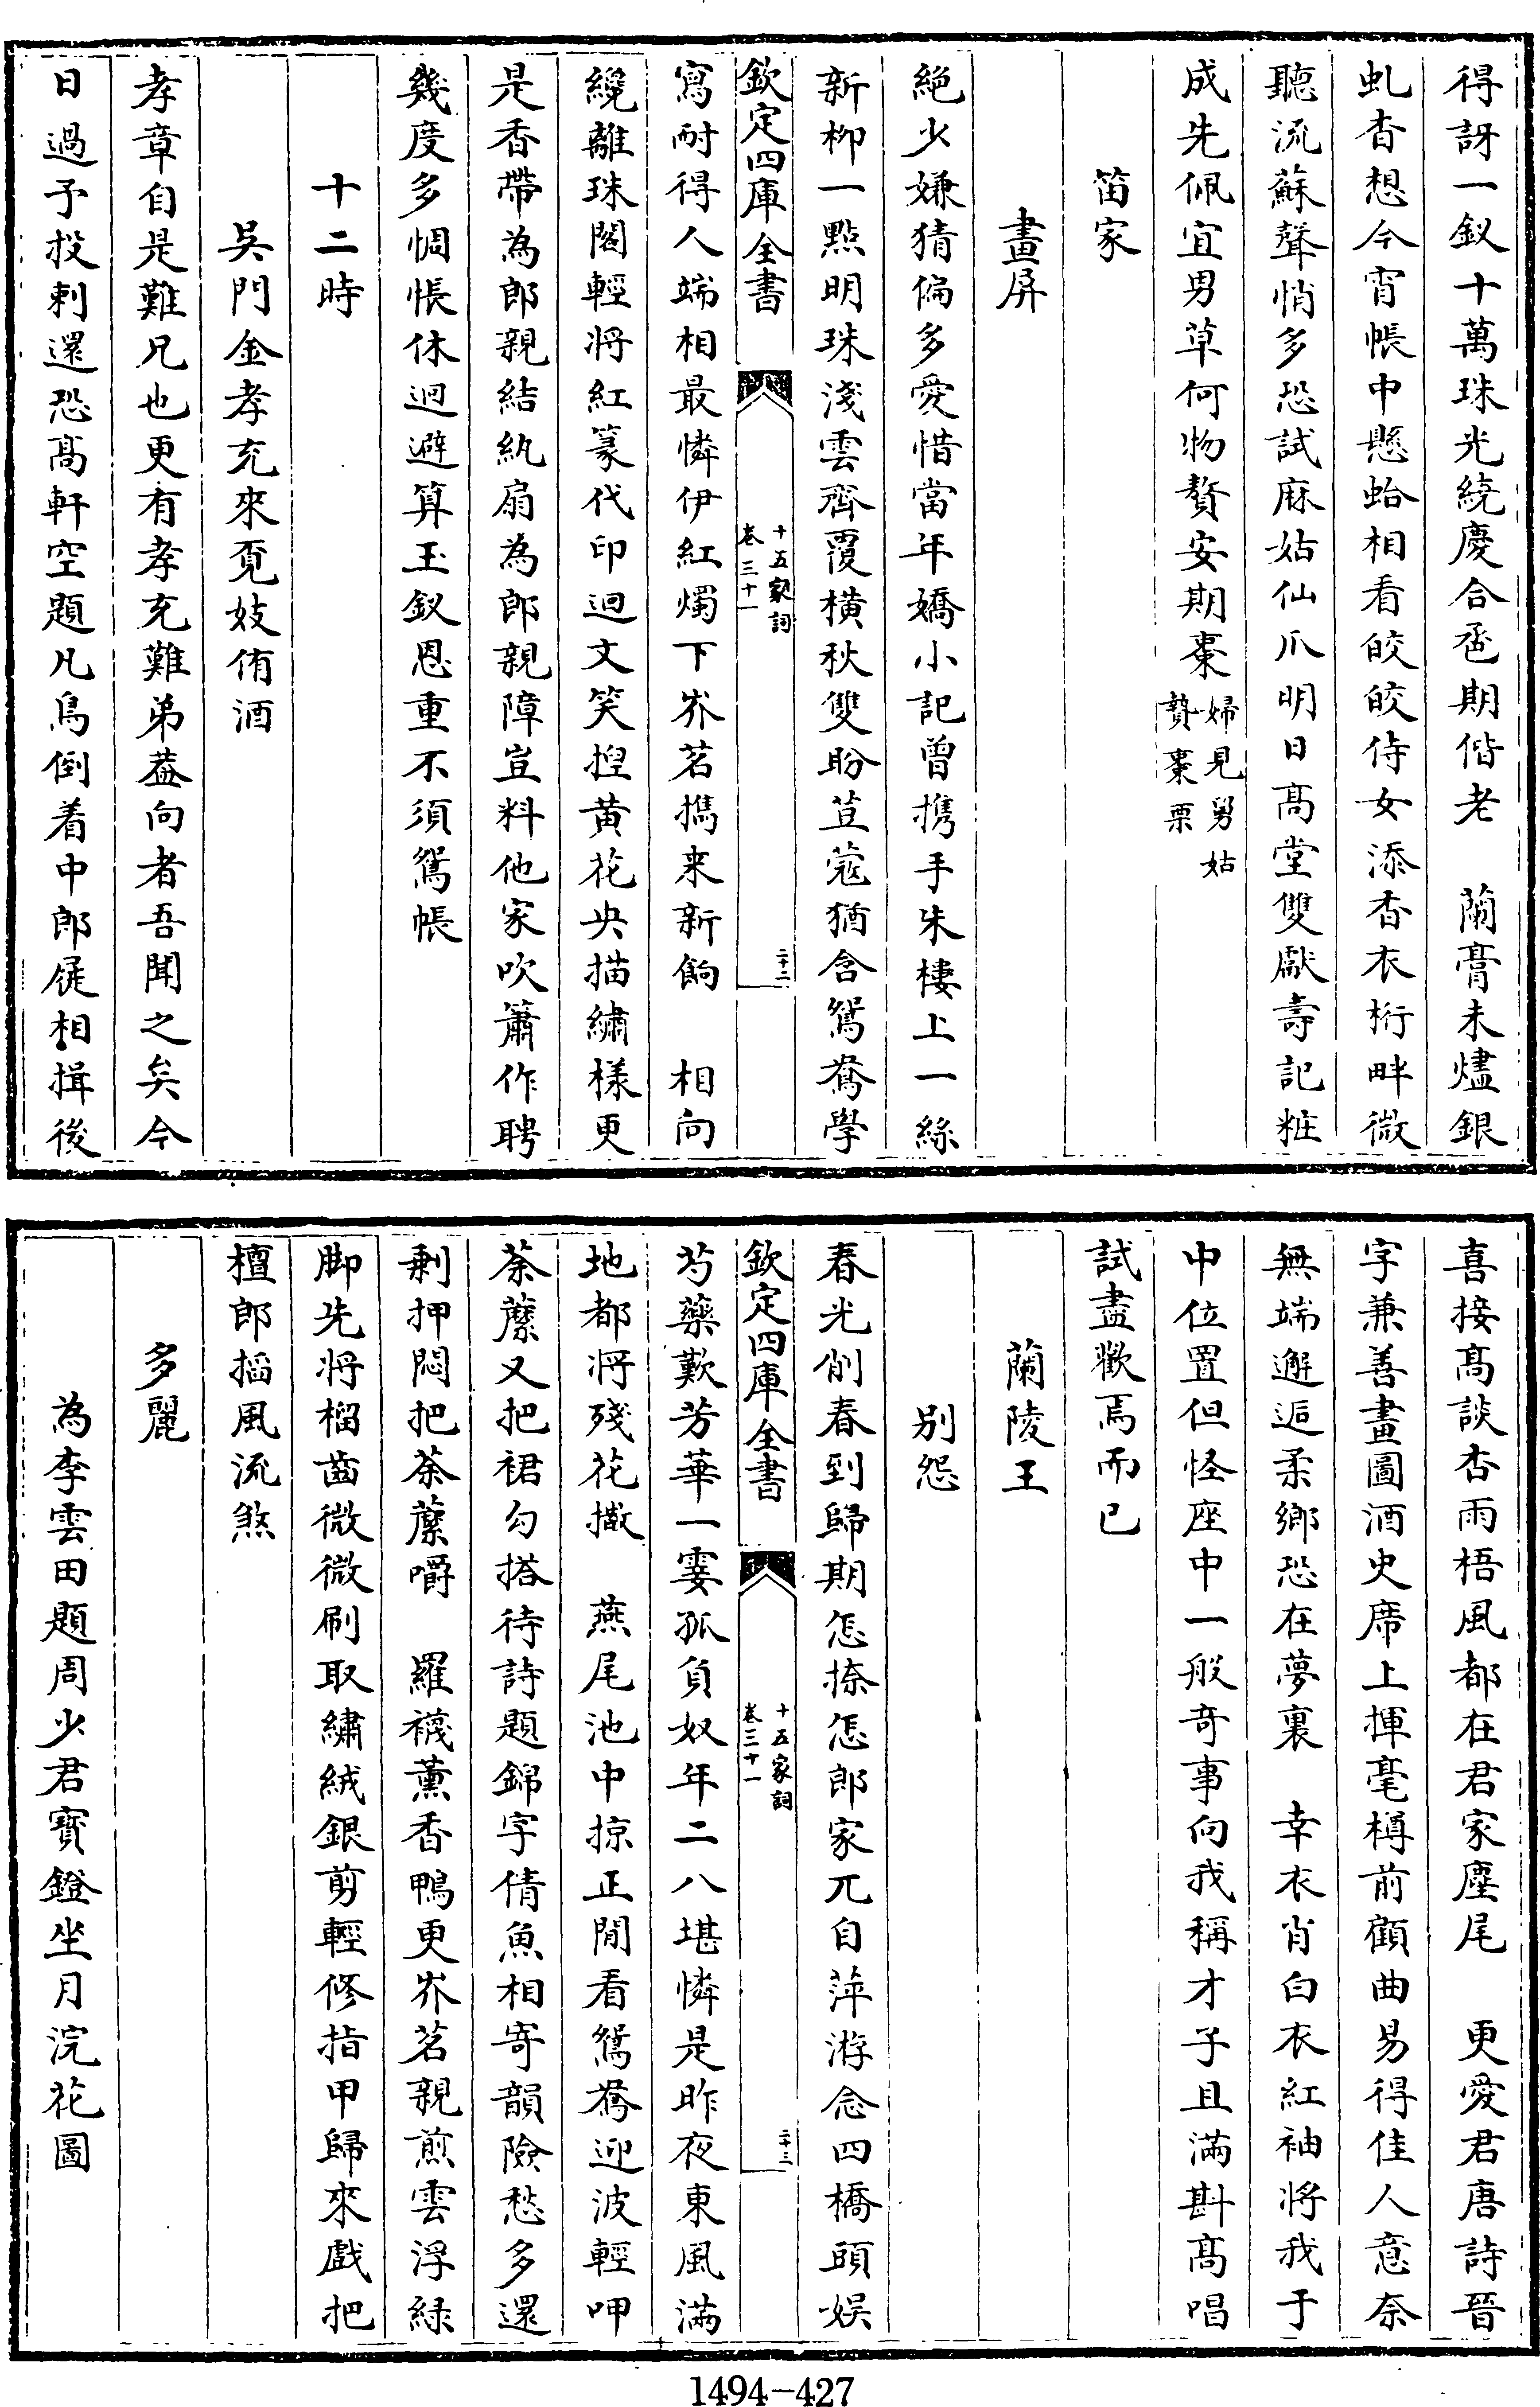 得訝一釵十萬珠光繞慶合巹期偕老　蘭膏未燼銀
虬杳想今宵帳中懸蛤相看皎皎侍女添香衣桁畔微
聽流蘇聲悄多恐試麻姑仙爪明日高堂雙獻壽記粧
成先佩宜男草何物贅安期棗婦見舅姑贄棗栗
笛家
畫屏
絶少嫌猜偏多愛惜當年嬌小記曾攜手朱樓上一絲
新柳一點明珠淺雲齊覆橫秋雙盼荳蔻猶含鴛鴦學
欽定四庫全書
十五家詞
卷三十一
二十二
寫耐得人端相最憐伊紅燭下岕茗擕来新餉　相向
纔離珠閣輕將紅篆代印迴文笑揑黄花央描繡樣更
是香帶為郎親結紈扇為郎親障豈料他家吹簫作聘
幾度多惆悵休迴避算玉釵恩重不須鴛帳
十二時
吳門金孝充來覔妓侑酒
孝章自是難兄也更有孝充難弟葢向者吾聞之矣今
日過予投刺還恐髙軒空題凡鳥倒着中郎屣相揖後
喜接髙談杏雨梧風都在君家麈尾　更愛君唐詩晉
字兼善畫圖酒史席上揮毫樽前顧曲易得佳人意奈
無端邂逅柔鄉恐在夢裏　幸衣肖白衣紅袖將我于
中位置但怪座中一般奇事向我稱才子且滿斟髙唱
試盡歡焉而已
蘭陵王
別怨
春光削春到歸期怎捺怎郎家兀自萍游念四橋頭娱
欽定四庫全書
十五家詞
卷三十一
二十三
芍藥歎芳華一霎孤負奴年二八堪憐是昨夜東風滿
地都將殘花撒　燕尾池中掠正閒看鴛鴦迎波輕呷
荼蘼又把裙勾搭待詩題錦字倩魚相寄韻險愁多還
剰押悶把荼蘼嚼　羅襪薰香鴨更岕茗親煎雲浮緑
脚先將榴齒微微刷取繡絨銀剪輕修指甲歸來戲把
檀郎掐風流煞
多麗
為李雲田題周少君寶鐙坐月浣花圖
1494-427